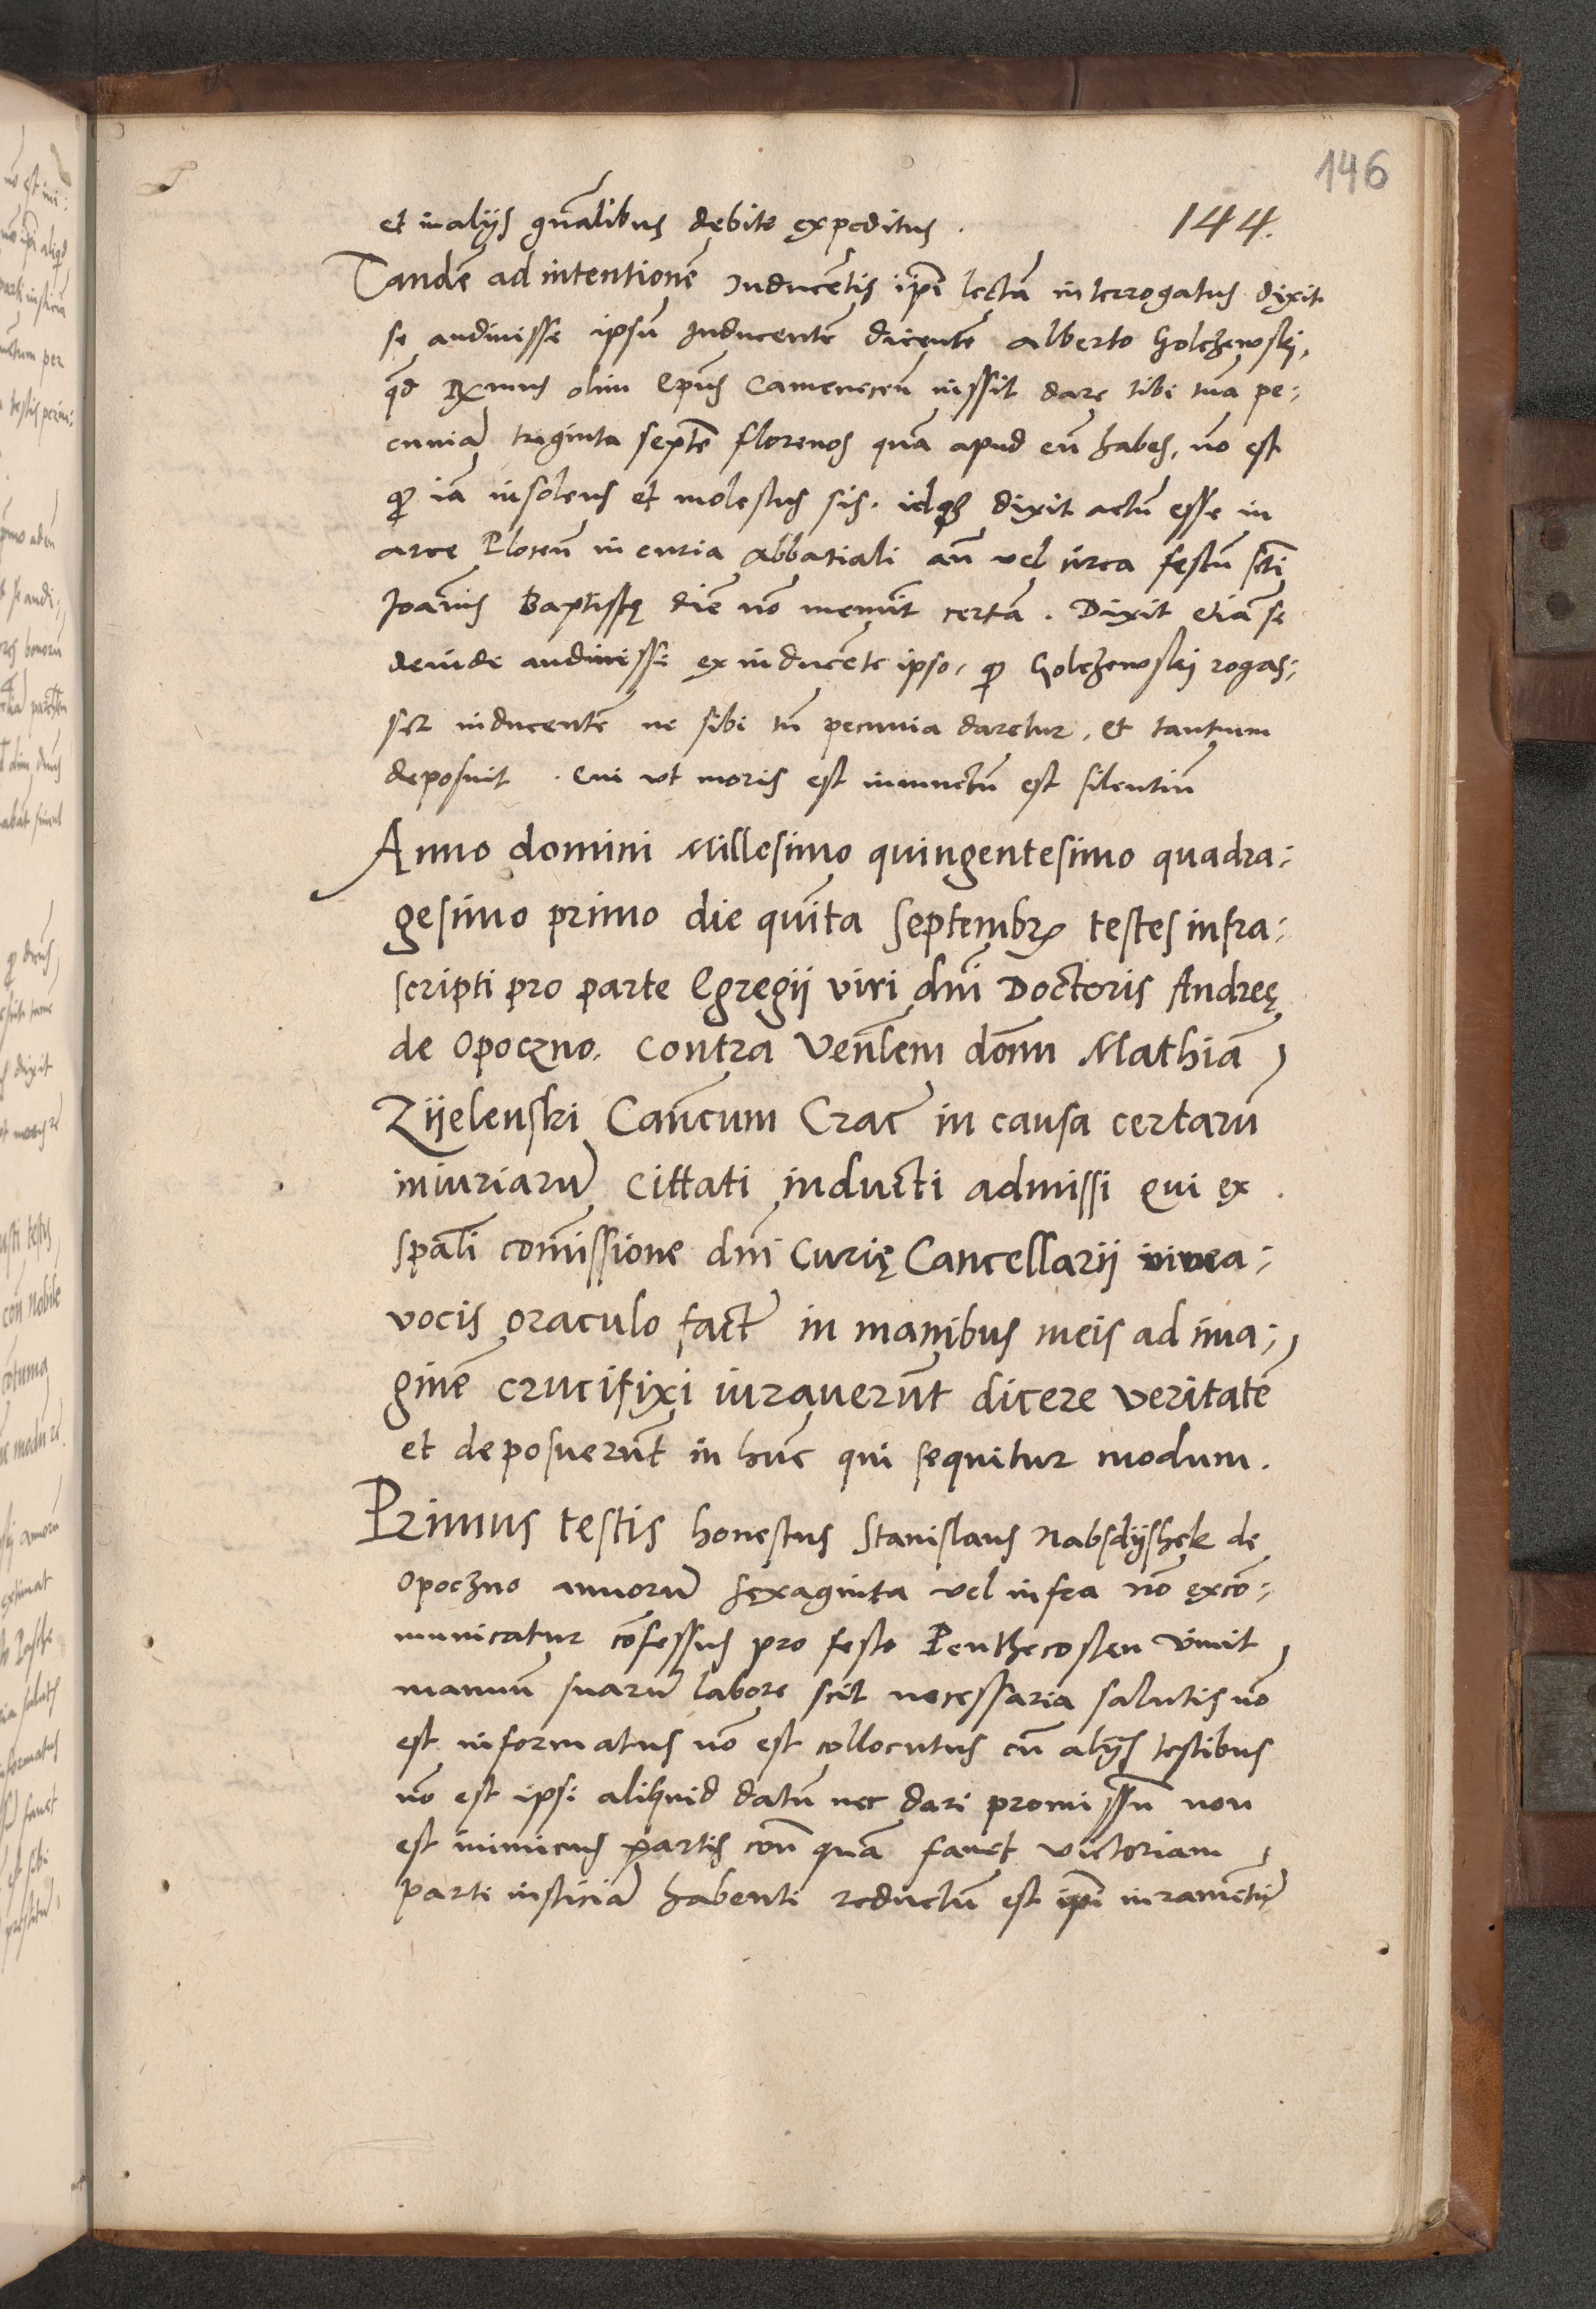 146
144.
et in alijs gñalibus debite expeditus.
Tandẽ ad intentionẽ Inducẽtis ipĩ lectã interrogatus dixit
se audiuisse ipsũ Inducentẽ dicentẽ Alberto Golczewski,
qd Rxmus olim Epũs Camenecen̄ iussit dare tibi tuã pe⸗
cuniã triginta septẽ florenos quã apud eũ habes, nõ est
ꝙ iã insolens et molestus sis. idqꝫ dixit actũ esse in
arce Plocen̄ in curia Abbatiali añ vel circa festũ scti
Joãnis Baptistę diẽ nõ meminit certã. Dixit etiã se
deinde audiuisse ex inducẽte ipso, ꝙ Golczewski rogas⸗
set inducentẽ ne sibi tũ pecunia daretur, et tantum
deposuit. Cui vt moris est iniunctũ est silentiũ
Anno domini Millesimo quingentesimo quadra⸗
gesimo primo die quĩta Septembrꝭ testes infra⸗
scripti pro parte Egregij viri dñi Doctoris Andreę
de Opoczno. contra Veñlem dom̃ Mathiã
Zijelenski Cañcum Crac̃ in causa certarũ
iniuriarũ Cittati inducti admissi qui ex
spãli com̃issione dñi Curię Cancellarij viuea⸗
vocis oraculo fact̃ in manibus meis ad ima⸗
ginẽ crucifixi iurauerũt dicere veritatẽ
et deposuerũt in hũc qui sequitur modum.
Primus testis honestus Stanislaus Nabsdijshek de
Opoczno annorũ sexaginta vel infra nõ excõ⸗
municatur cõfessus pro festo Penthecosten viuit
manuũ suarũ labore scit necessaria salutis nõ
est informatus nõ est collocutus cũ alijs testibus
nõ est ipsi aliquid datũ nec dari promissũ non
est inimicus partis coñ quã fauet victoriam
parti iusticiã habenti reductũ est ipĩ iuramẽtũ